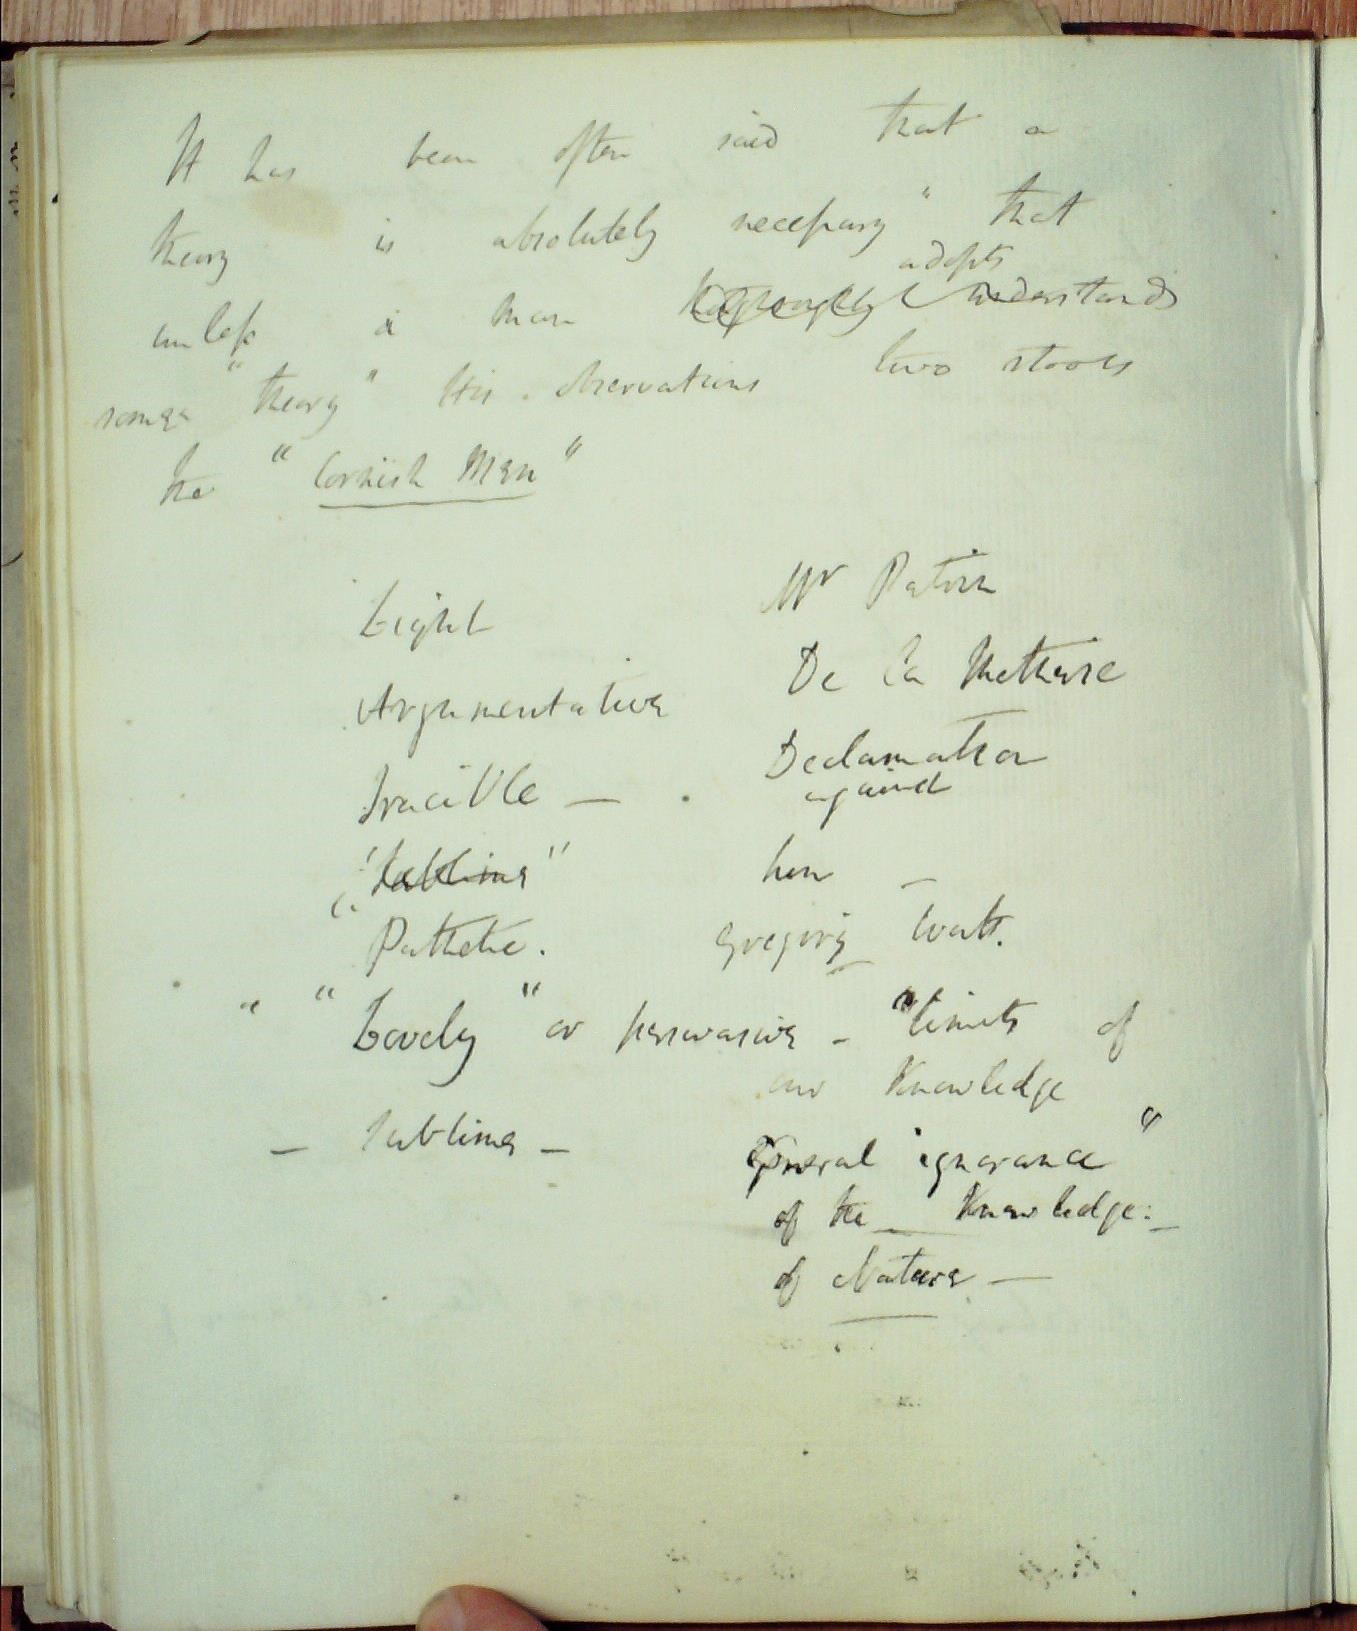 It has been often said that a
theory is absolutely necessary" that
adopts
unless a man thoroughly understands
some "theory" His observations two stools
the "Cornish Men"
Light Mr
Argumentative De la
Irascible — Declamation
against
"Sublime" him —
"Pathetic. Gregory Watt.
" "Lovely" or perswasive - "limits of
our Knowledge
— Sublime — General ignorance"
of the — Knowledge: —
of Nature —